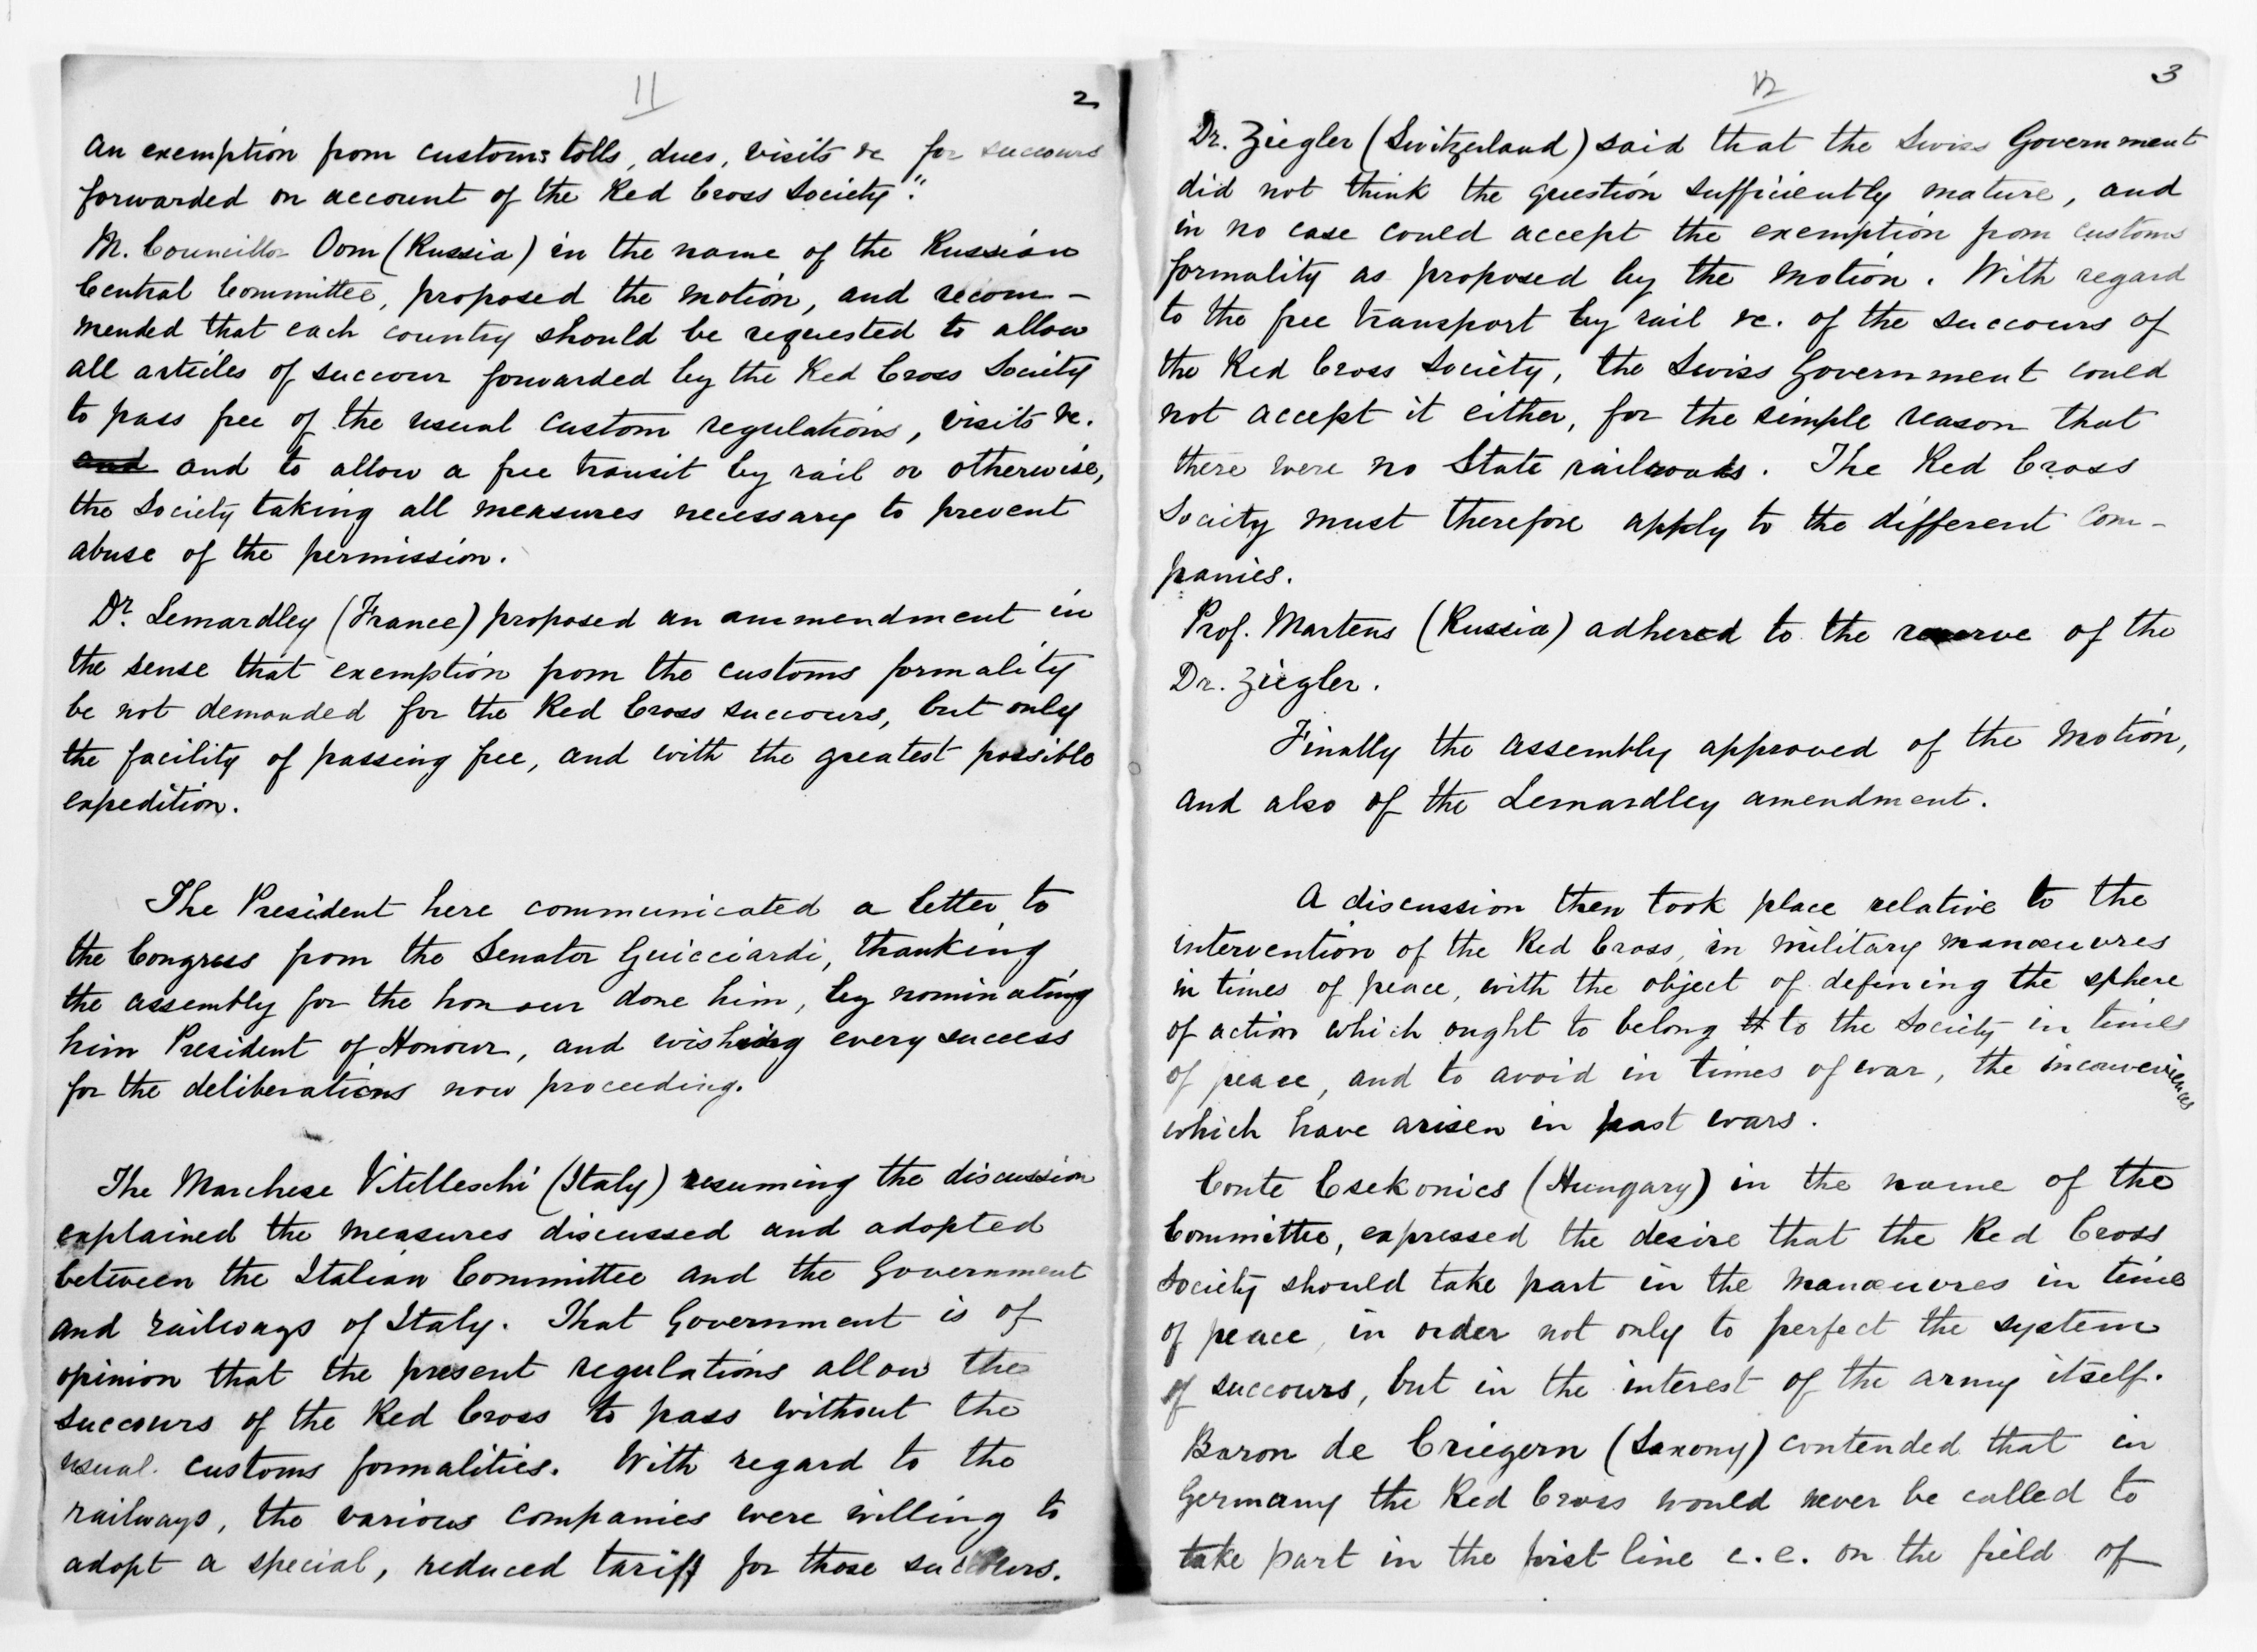 11
2
an exemption from customs tolls, dues, visits &c for succours
forwarded on account of the Red Cross Society".
M. Councillor Oom (Russia) in the name of the Russian
Central Committee, proposed the motion, and recom-
mended that each country should be requested to allow
all articles of succour forwarded by the Red Cross Society
to pass free of the usual custom regulations, visits &c.
and and to allow a free transit by rail or otherwise,
the Society taking all measures necessary to prevent
abuse of the permission.
Dr. Lemardley (France) proposed an ammendment in
the sense that exemption from the customs formality
be not demanded for the Red Cross succours, but only
the facility of passing free, and with the greatest possible
expedition.
The President here communicated a letter to
the Congress from the Senator Guicciardi, thanking
the assembly for the honour done him, by nominating
him President of Honour, and wishing every success
for the deliberations now proceeding.
The Marchese Vitelleschi (Italy) resuming the discussion
explained the measures discussed and adopted
between the Italian Committee and the Government
and railways of Italy. That Government is of
opinion that the present regulations allow the
succours of the Red Cross to pass without the
usual customs formalities. With regard to the
railways, the various companies were willing to
adopt a special, reduced tariff for those succours.
12
3
Dr. Ziegler (Switzerland) said that the Swiss Government
did not think the question sufficiently mature, and
in no case could accept the exemption from customs
formality as proposed by the motion. With regard
to the free transport by rail &c. of the succours of
the Red Cross Society, the Swiss Government could
not accept it either, for the simple reason that
there were no State railroads. The Red Cross
Society must therefore apply to the different com-
panies.
Prof. Martens (Russia) adhered to the reserve of the
Dr. Ziegler.
Finally the assembly approved of the motion,
and also of the Lemardley amendment.
A discussion then took place relative to the
intervention of the Red Cross, in military manœuvres
in times of peace, with the object of defining the sphere
of action which ought to belong to the Society in times
of peace, and to avoid in times of war, the inconveniences
which have arisen in past wars.
Conte Csekonics (Hungary) in the name of the
Committee, expressed the desire that the Red Cross
Society should take part in the manœuvres in time
of peace, in order not only to perfect the system
of succours, but in the interest of the army itself.
Baron de Criegern (Saxony) contended that in
Germany the Red Cross would never be called to
take part in the first line i.e. on the field of